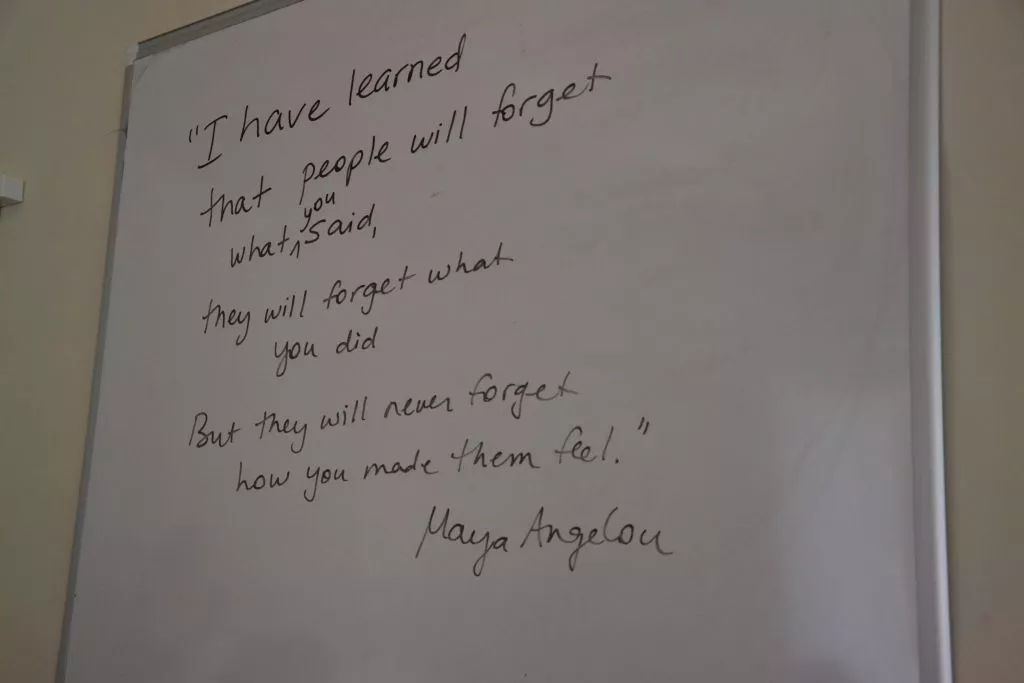 "I have learned
that people will forget
what you said,
they will forget what
you did
But they will never forget
how you made them feel."
Maya Angelou